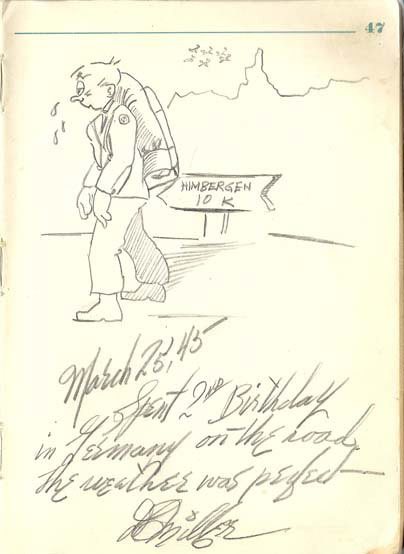 47
HIMBERGEN
10 K
March 25, 45
Spent 2ND Birthday
in Germany on the road,
the weather was perfect —
Miller